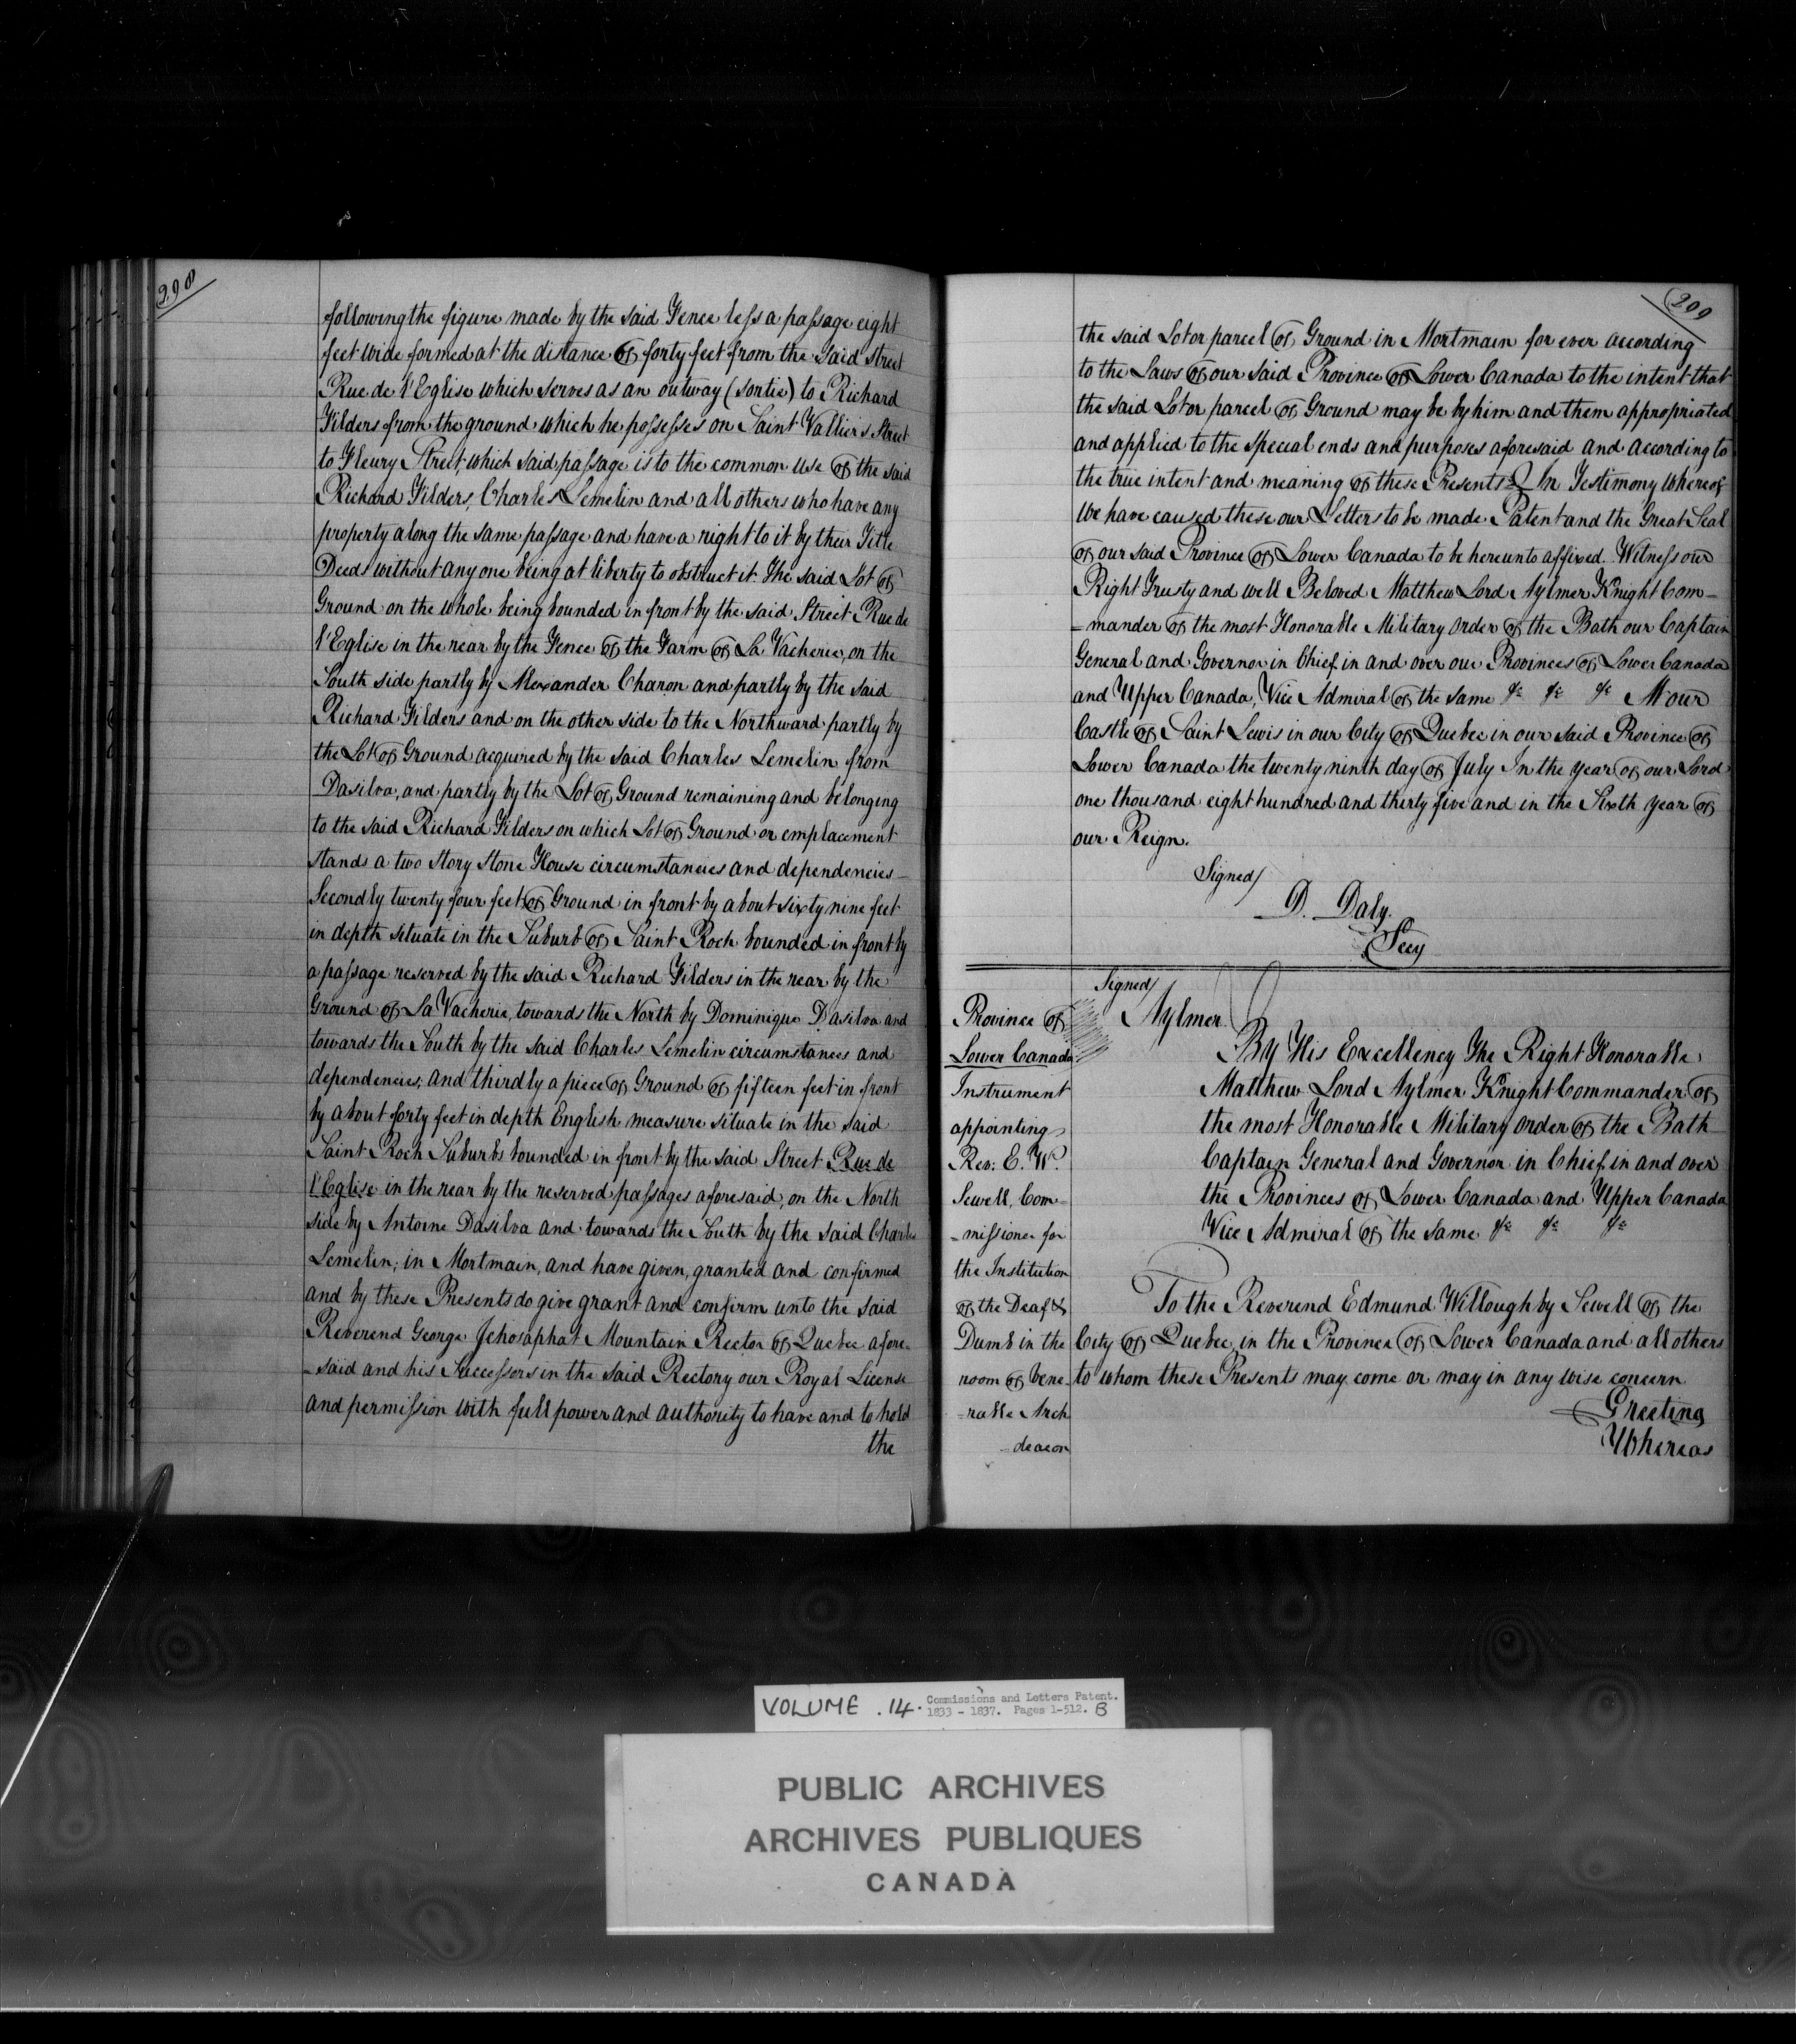 298
following the figure made by the said Fence less a passage eight
feet wide formed at the distance of forty feet from the said Street
Rue de l'Eglise which serves as an outway (sortie) to Richard
Filders from the ground which he possesses on Saint Vallier's Street
to Fleury Street which said passage is to the common use of the said
Richard Filders, Charles Lemelin and all others who have any
property along the same passage and have a right to it by their Title
Deeds without any one being at liberty to obstruct it. The said Lot of
Ground on the whole being bounded in front by the said Street Rue de
l'Eglise in the rear by the Fence of the Farm of La Vacherie, on the
South side partly by Alexander Charon and partly by the said
Richard Filders and on the other side to the Northward partly by
the Lot of Ground acquired by the said Charles Lemelin from
Dasilva, and partly by the Lot of Ground remaining and belonging
to the said Richard Filders on which Lot of Ground or emplacement
stands a two Story Stone House circumstances and dependencies
Secondly twenty four feet of Ground in front by about sixty nine feet
in depth situate in the Suburb of Saint Roch bounded in front by
a passage reserved by the said Richard Filders in the rear by the
Ground of La Vacherie, towards the North by Dominique Dasilva and
towards the South by the said Charles Lemelin circumstances and
dependencies; and thirdly a piece of Ground of fifteen feet in front
by about forty feet in depth English measure situate in the said
Saint Roch Suburbs bounded in front by the said Street Rue de
l'Eglise in the rear by the reserved passages aforesaid, on the North
side by Antoine Dasilva and towards the South by the said Charles
Lemelin; in Mortmain, and have given, granted and confirmed
and by these Presents do give grant and confirm unto the said
Reverend George Jehosaphat Mountain Rector of Quebec afore-
-said and his Successors in the said Rectory our Royal License
and permission with full power and authority to have and to hold
the
299
the said Lot or parcel of Ground in Mortmain for ever according
to the Laws of our said Province of Lower Canada to the intent that
the said Lot or parcel of Ground may be by him and them appropriated
and applied to the special ends and purposes aforesaid and according to
the true intent and meaning of these Presents. In Testimony whereof
We have caused these our Letters to be made Patent and the Great Seal
of our said Province of Lower Canada to be hereunto affixed. Witness our
Right Trusty and well Beloved Matthew Lord Aylmer Knight Com-
-mander of the most Honorable Military Order of the Bath our Captain
General and Governor in Chief in and over our Provinces of Lower Canada
and Upper Canada, Vice Admiral of the same &c &c &c At our
Castle of Saint Lewis in our City of Quebec in our said Province of
Lower Canada the twenty ninth day of July In the year of our Lord
one thousand eight hundred and thirty five and in the Sixth year of
our Reign.
Signed/
D. Daly.
Secy
Signed/
Aylmer
Province of
Lower Canada
Instrument
appointing
Rev: E. W.
Sewell, Com-
-missioner for
the Institution
of the Deaf &
Dumb in the
room of Vene-
-rable Arch
-deacon
By His Excellency The Right Honorable
Matthew Lord Aylmer Knight Commander of
the most Honorable Military Order of the Bath
Captain General and Governor in Chief in and over
the Provinces of Lower Canada and Upper Canada
Vice Admiral of the same &c &c &c
To the Reverend Edmund Willoughby Sewell of the
City of Quebec, in the Province of Lower Canada and all others
to whom these Presents may come or may in any wise concern
Greeting
Whereas
VOLUME .14. Commissions and Letters Patent.
1833 - 1837. Pages 1-512. B
PUBLIC ARCHIVES
ARCHIVES PUBLIQUES
CANADA